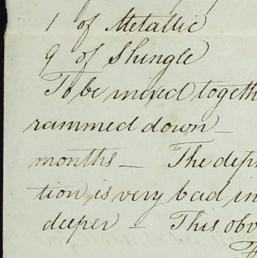 1 of Metallic
9 of Shingle
To be mixed togeth
rammed down —
months — The dep
tion is very bad in
deeper — This obv